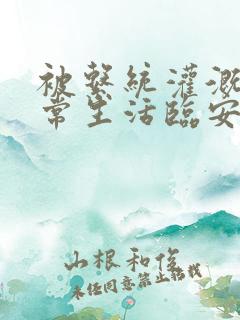 被系統灌溉
常生活臨安
山根和俊
未经同意禁止转载